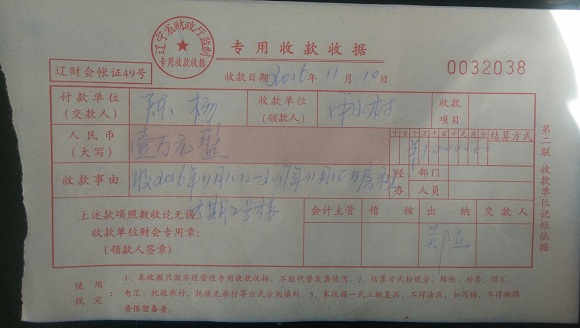 辽宁省财政厅监制
专用收款收据
专用收款收据
辽财会帐证49号
收款日期2016年11月10日
0032038
付款单位(交款人) 陈杨 收款单位(领款人) 收款项目
人民币(大写) 壹万元整 千百十万千百十元角分 结算方式
¥1000000
收款事由 收2016年11月10日-2017年11月10日房租 经办 部门 人员
上述款项照数收讫无误 2号楼
收款单位财会专用章:
(领款人签章)
会计主管 稽核 出纳 交款人
第二联 收款单位记帐依据
使用规定:
1、本收据只做非经营性专用收款收据,不能代替发票使用。2、结算方式按现金、转帐、付委、信汇、
电汇、托收承付、托收无承付等方式分别填列。3、本收据一式三联复写,不得涂改,如写错,不得撕掉
要保留备查。